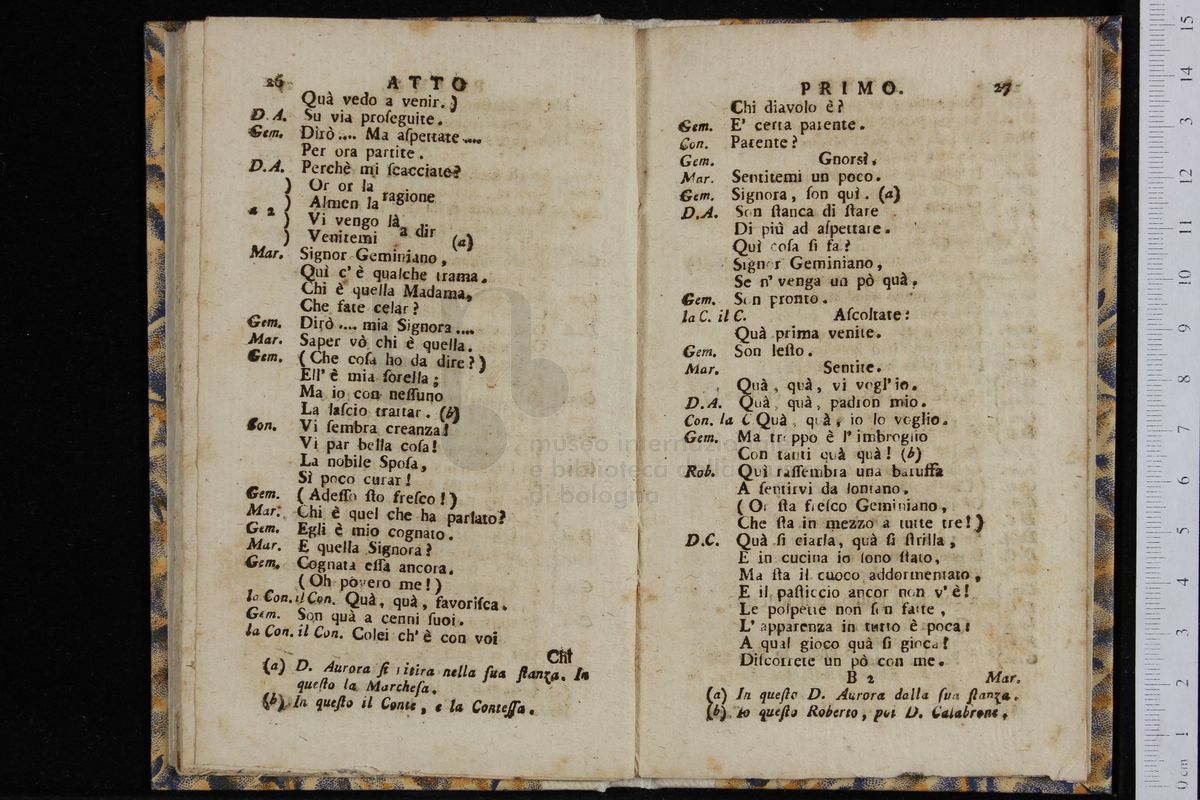 26 ATTO
Quà vedo a venir. )
D. A. Su via proſeguite.
Gem. Dirò .... Ma aſpettate ....
Per ora partite.
D. A. Perchè mi ſcacciate?
) Or or la
) Almen la ragione
a 2 ) Vi vengo là
) Venitemi a dir (a)
Mar. Signor Geminiano,
Quì c' è qualche trama.
Chi è quella Madama,
Che fate celar?
Gem. Dirò .... mia Signora ....
Mar. Saper vò chi è quella.
Gem. (Che coſa ho da dire?)
Ell' è mia ſorella;
Ma io con neſſuno
La laſcio trattar. (b)
Con. Vi ſembra creanza!
Vi par bella coſa!
La nobile Spoſa,
Sì poco curar!
Gem. (Adeſſo ſto freſco!)
Mar. Chi è quel che ha parlato?
Gem. Egli è mio cognato.
Mar. E quella Signora?
Gem. Cognata eſſa ancora.
(Oh povero me!)
la Con. il Con. Quà, quà, favoriſca.
Gem. Son quà a cenni ſuoi.
la Con. il Con. Colei ch' è con voi
Chi
(a) D. Aurora ſi ritira nella ſua ſtanza. In
queſto la Marcheſa.
(b) In queſto il Conte, e la Conteſſa.
PRIMO. 27
Chi diavolo è?
Gem. E' certa parente.
Con. Parente?
Gem. Gnorsì.
Mar. Sentitemi un poco.
Gem. Signora, ſon quì. (a)
D.A. Son ſtanca di ſtare
Di più ad aſpettare.
Quì coſa ſi fa?
Signor Geminiano,
Se n' venga un pò quà.
Gem. Son pronto.
la C. il C. Aſcoltate:
Quà prima venite.
Gem. Son leſto.
Mar. Sentite.
Quà, quà, vi vogl' io.
D.A. Quà, quà, padron mio.
Con. la C Quà, quà, io lo voglio.
Gem. Ma troppo è l' imbroglio
Con tanti quà quà! (b)
Rob. Quì raſſembra una baruffa
A ſentirvi da lontano.
(Or ſta freſco Geminiano,
Che ſta in mezzo a tutte tre!)
D.C. Quà ſi ciarla, quà ſi ſtrilla;
E in cucina io ſono ſtato,
Ma ſta il cuoco addormentato,
E il paſticcio ancor non v' è!
Le polpette non ſon fatte,
L' apparenza in tutto è poca!
A qual gioco quà ſi gioca!
Diſcorrete un pò con me.
B 2 Mar.
(a) In queſto D. Aurora dalla ſua ſtanza.
(b) In queſto Roberto, poi D. Calabrone.
museo internazio
e biblioteca della
di bologna